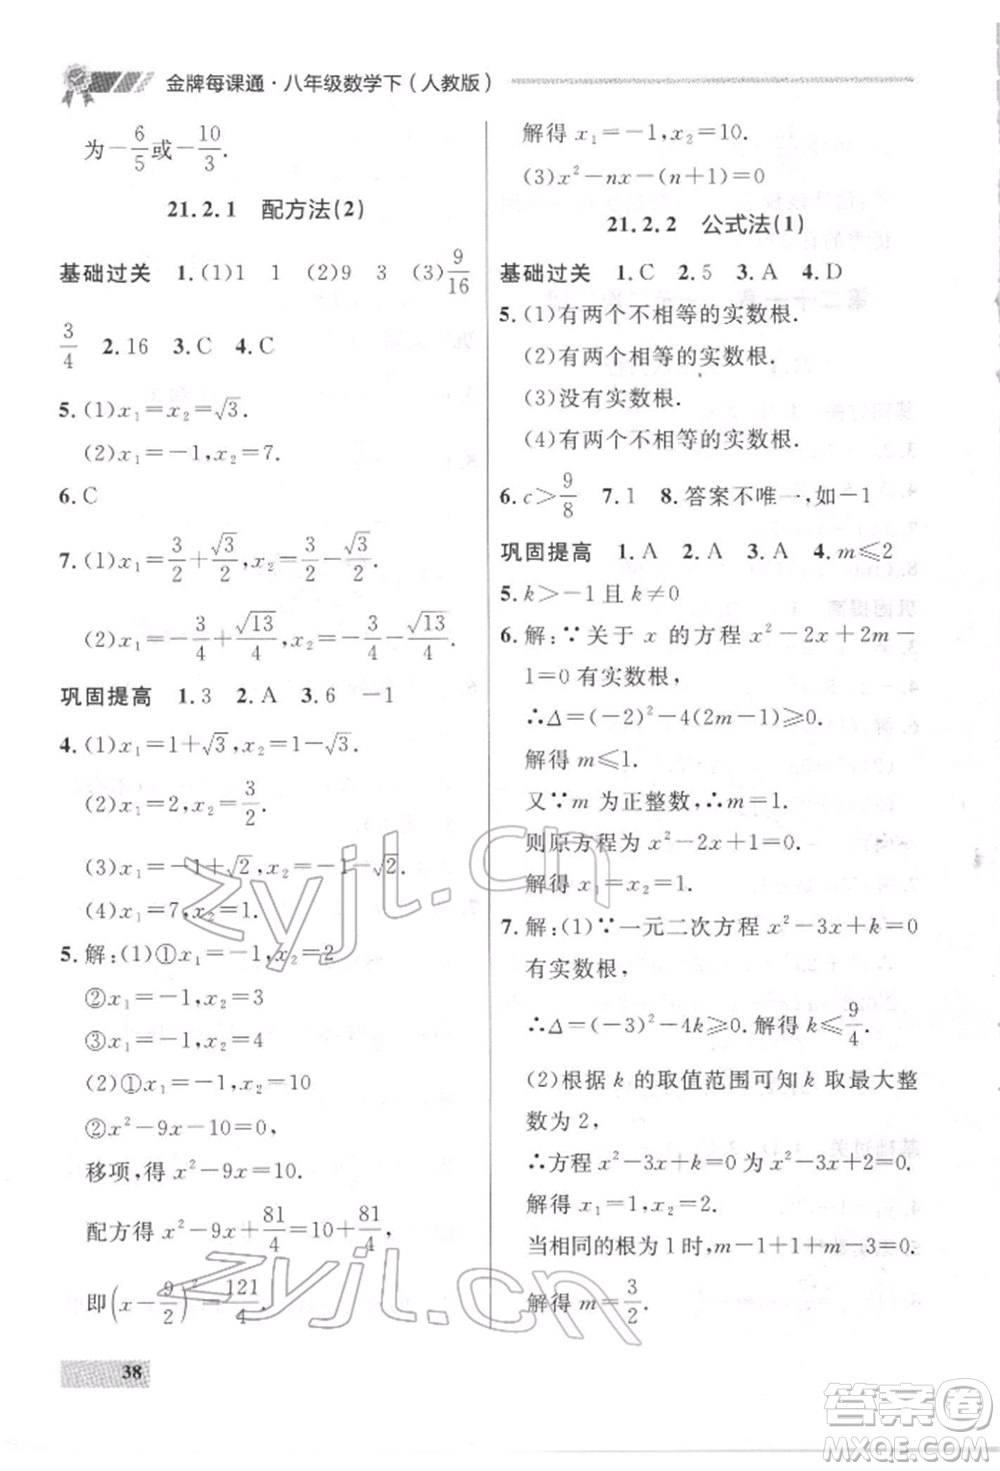 金牌每课通·八年级数学下(人教版)
为-6/5或-10/3.
21.2.1 配方法(2)
基础过关 1.(1)1 1 (2)9 3 (3)9/16
3/4 2.16 3.C 4.C
5.(1)x₁=x₂=√3.
(2)x₁=-1,x₂=7.
6.C
7.(1)x₁=3/2+√3/2,x₂=3/2-√3/2.
(2)x₁=-3/4+√13/4,x₂=-3/4-√13/4.
巩固提高 1.3 2.A 3.6 -1
4.(1)x₁=1+√3,x₂=1-√3.
(2)x₁=2,x₂=3/2.
(3)x₁=-1+√2,x₂=-1-√2.
(4)x₁=7,x₂=-1.
5.解:(1)①x₁=-1,x₂=2
②x₁=-1,x₂=3
③x₁=-1,x₂=4
(2)①x₁=-1,x₂=10
②x²-9x-10=0,
移项,得x²-9x=10.
配方得x²-9x+81/4=10+81/4,
即(x-9/2)²=121/4.
38
解得x₁=-1,x₂=10.
(3)x²-nx-(n+1)=0
21.2.2 公式法(1)
基础过关 1.C 2.5 3.A 4.D
5.(1)有两个不相等的实数根.
(2)有两个不相等的实数根.
(3)没有实数根.
(4)有两个不相等的实数根.
6.c>9/8 7.1 8.答案不唯一,如-1
巩固提高 1.A 2.A 3.A 4.m≤2
5.k>-1且k≠0
6.解:∵关于x的方程x²-2x+2m-
1=0有实数根.
∴Δ=(-2)²-4(2m-1)≥0.
解得m≤1.
又∵m为正整数,∴m=1.
则原方程为x²-2x+1=0.
解得x₁=x₂=1.
7.解:(1)∵一元二次方程x²-3x+k=0
有实数根,
∴Δ=(-3)²-4k≥0.解得k≤9/4.
(2)根据k的取值范围可知k取最大整
数为2,
∴方程x²-3x+k=0为x²-3x+2=0.
解得x₁=1,x₂=2.
当相同的根为1时,m-1+1+m-3=0.
解得m=3/2.
zyjl.cn
zyjl.cn
答案圈
MXQE.COM